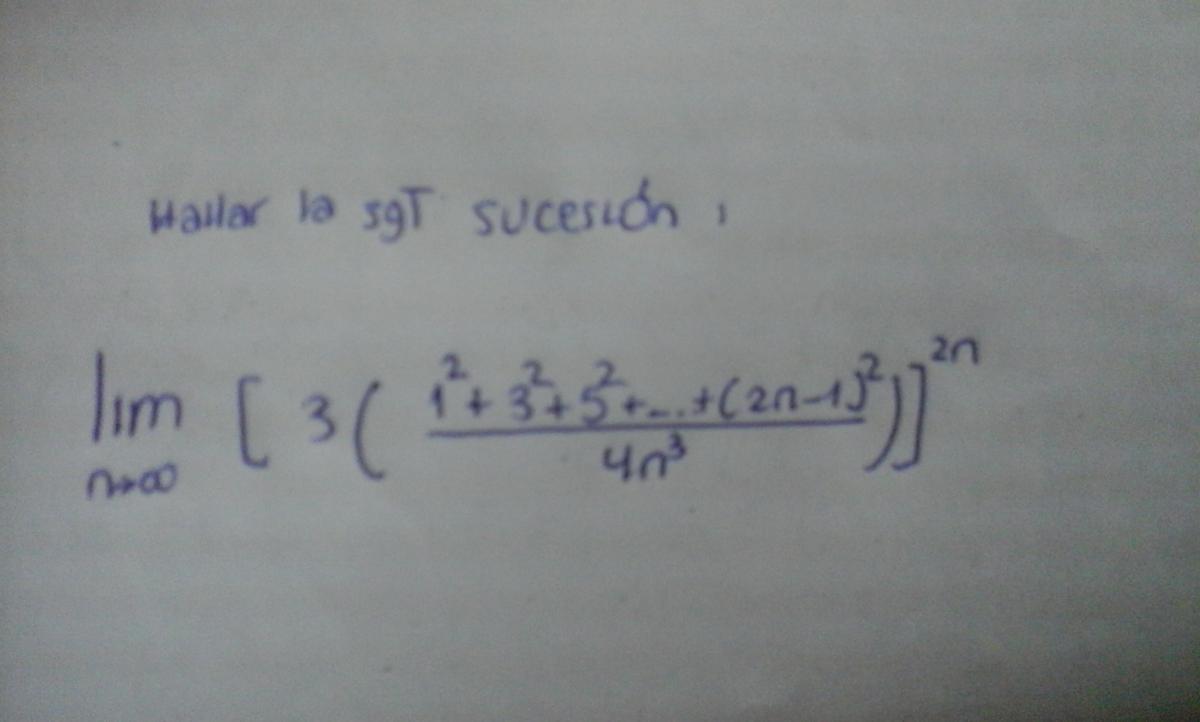 Hallar la sgT sucesión:
lim n→∞ [ 3 ( (1² + 3² + 5² + ... + (2n-1)²) / 4n³ ) ]²ⁿ